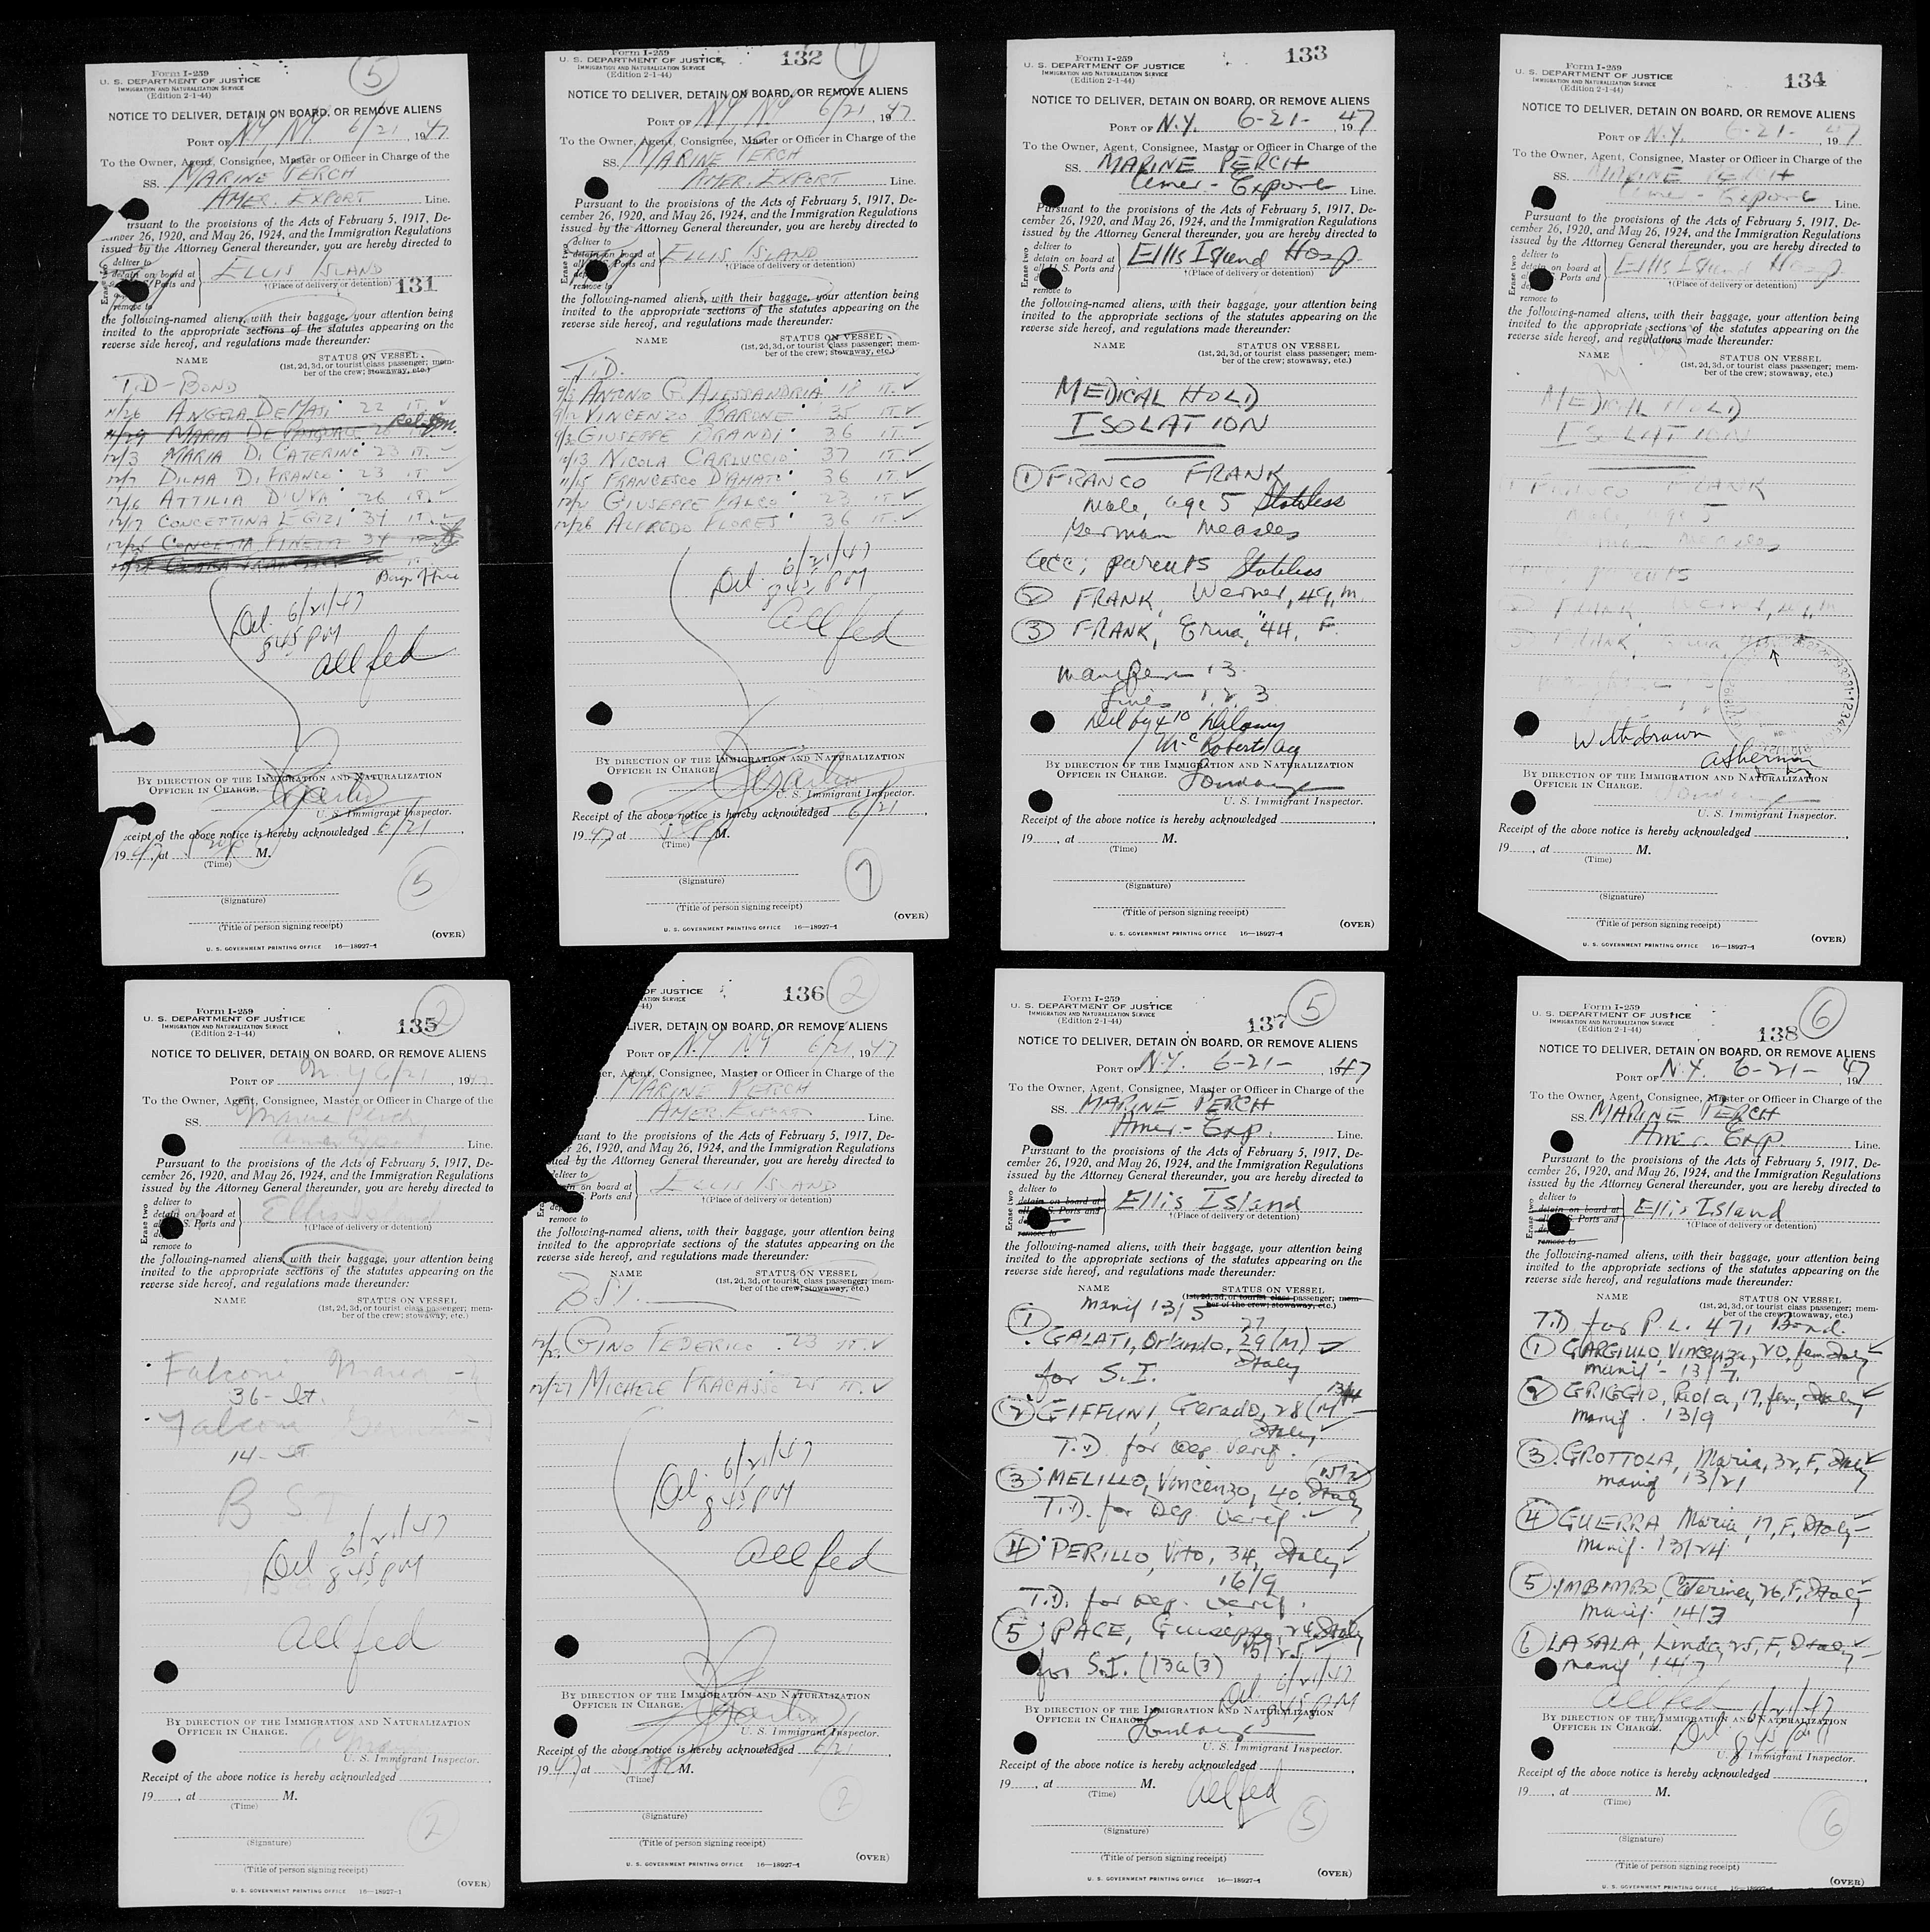 Form I-259
U. S. DEPARTMENT OF JUSTICE
IMMIGRATION AND NATURALIZATION SERVICE
(Edition 2-1-44)
5
NOTICE TO DELIVER, DETAIN ON BOARD, OR REMOVE ALIENS
PORT OF NY NY. 6/21, 1947
To the Owner, Agent, Consignee, Master or Officer in Charge of the
SS. MARINE PERCH
AMER. EXPORT Line.
rsuant to the provisions of the Acts of February 5, 1917, De-
mber 26, 1920, and May 26, 1924, and the Immigration Regulations
issued by the Attorney General thereunder, you are hereby directed to
Erase two
deliver to
detain on board at
S. Ports and
remove to
ELLIS ISLAND
†(Place of delivery or detention) 131
the following-named aliens, with their baggage, your attention being
invited to the appropriate sections of the statutes appearing on the
reverse side hereof, and regulations made thereunder:
NAME STATUS ON VESSEL
(1st, 2d, 3d, or tourist class passenger; mem-
ber of the crew; stowaway, etc.)
T.D - BOND
11/26 ANGELA DEMASI 22 IT. ✓
11/29 MARIA
12/3 MARIA DI CATERINO 23 IT. ✓
12/7 DILMA DI FRANCO 23 IT. ✓
12/16 ATTILIA D'UVA 26 IT. ✓
12/17 CONCETTINA EGIZI 34 IT. ✓
12/25 CONCETTA
Del. 6/21/47
845 PM
all fed
BY DIRECTION OF THE IMMIGRATION AND NATURALIZATION
OFFICER IN CHARGE.
U. S. Immigrant Inspector.
eceipt of the above notice is hereby acknowledged 6/21,
1947, at M.
(Time)
5
(Signature)
(Title of person signing receipt)
(OVER)
U. S. GOVERNMENT PRINTING OFFICE 16—18927-1
Form I-259
U. S. DEPARTMENT OF JUSTICE
IMMIGRATION AND NATURALIZATION SERVICE
(Edition 2-1-44)
132
7
NOTICE TO DELIVER, DETAIN ON BOARD, OR REMOVE ALIENS
PORT OF NY NY 6/21, 1947
To the Owner, Agent, Consignee, Master or Officer in Charge of the
SS. MARINE PERCH
AMER. EXPORT Line.
Pursuant to the provisions of the Acts of February 5, 1917, De-
cember 26, 1920, and May 26, 1924, and the Immigration Regulations
issued by the Attorney General thereunder, you are hereby directed to
Erase two
deliver to
detain on board at
all S. Ports and
remove to
ELLIS ISLAND
†(Place of delivery or detention)
the following-named aliens, with their baggage, your attention being
invited to the appropriate sections of the statutes appearing on the
reverse side hereof, and regulations made thereunder:
NAME STATUS ON VESSEL
(1st, 2d, 3d, or tourist class passenger; mem-
ber of the crew; stowaway, etc.)
T.D.
ANTONIO G. ALESSANDRIA 18 IT. ✓
VINCENZO BARONE 35 IT. ✓
GIUSEPPE BRANDI 36 IT. ✓
10/13 NICOLA CARLUCCIO 37 IT. ✓
11/15 FRANCESCO D'AMATO 36 IT. ✓
12/21 GIUSEPPE FALCO 23 IT. ✓
12/26 ALFREDO FLORES 36 IT. ✓
Del. 6/21/47
845 PM
all fed
BY DIRECTION OF THE IMMIGRATION AND NATURALIZATION
OFFICER IN CHARGE.
U. S. Immigrant Inspector.
Receipt of the above notice is hereby acknowledged 6/21,
1947, at M.
(Time)
7
(Signature)
(Title of person signing receipt)
(OVER)
U. S. GOVERNMENT PRINTING OFFICE 16—18927-1
Form I-259
U. S. DEPARTMENT OF JUSTICE
IMMIGRATION AND NATURALIZATION SERVICE
(Edition 2-1-44)
133
NOTICE TO DELIVER, DETAIN ON BOARD, OR REMOVE ALIENS
PORT OF N.Y. 6-21-1947
To the Owner, Agent, Consignee, Master or Officer in Charge of the
SS. MARINE PERCH
Amer - Export Line.
Pursuant to the provisions of the Acts of February 5, 1917, De-
cember 26, 1920, and May 26, 1924, and the Immigration Regulations
issued by the Attorney General thereunder, you are hereby directed to
Erase two
deliver to
detain on board at
all U. S. Ports and
remove to
Ellis Island Hosp.
†(Place of delivery or detention)
the following-named aliens, with their baggage, your attention being
invited to the appropriate sections of the statutes appearing on the
reverse side hereof, and regulations made thereunder:
NAME STATUS ON VESSEL
(1st, 2d, 3d, or tourist class passenger; mem-
ber of the crew; stowaway, etc.)
MEDICAL HOLD
ISOLATION
1 FRANCO FRANK
male, age 5 Stateless
German measles
acc. parents Stateless
2 FRANK, Werner, 49, m.
3 FRANK, Erna, 44, F.
manifest 13
lines 1, 2, 3
Del by
BY DIRECTION OF THE IMMIGRATION AND NATURALIZATION
OFFICER IN CHARGE.
U. S. Immigrant Inspector.
Receipt of the above notice is hereby acknowledged
19 , at M.
(Time)
(Signature)
(Title of person signing receipt)
(OVER)
U. S. GOVERNMENT PRINTING OFFICE 16—18927-1
Form I-259
U. S. DEPARTMENT OF JUSTICE
IMMIGRATION AND NATURALIZATION SERVICE
(Edition 2-1-44)
134
NOTICE TO DELIVER, DETAIN ON BOARD, OR REMOVE ALIENS
PORT OF N.Y. 6-21-, 1947
To the Owner, Agent, Consignee, Master or Officer in Charge of the
SS. MARINE PERCH
Amer - Export Line.
Pursuant to the provisions of the Acts of February 5, 1917, De-
cember 26, 1920, and May 26, 1924, and the Immigration Regulations
issued by the Attorney General thereunder, you are hereby directed to
Erase two
deliver to
detain on board at
all S. Ports and
remove to
Ellis Island Hosp.
†(Place of delivery or detention)
the following-named aliens, with their baggage, your attention being
invited to the appropriate sections of the statutes appearing on the
reverse side hereof, and regulations made thereunder:
NAME STATUS ON VESSEL
(1st, 2d, 3d, or tourist class passenger; mem-
ber of the crew; stowaway, etc.)
MEDICAL HOLD
ISOLATION
FRANCO FRANK
male, age 5
measles
parents
FRANK,
3 FRANK, Erna,
Withdrawn
BY DIRECTION OF THE IMMIGRATION AND NATURALIZATION
OFFICER IN CHARGE.
U. S. Immigrant Inspector.
Receipt of the above notice is hereby acknowledged
19 , at M.
(Time)
(Signature)
(Title of person signing receipt)
(OVER)
U. S. GOVERNMENT PRINTING OFFICE 16—18927-1
Form I-259
U. S. DEPARTMENT OF JUSTICE
IMMIGRATION AND NATURALIZATION SERVICE
(Edition 2-1-44)
135
2
NOTICE TO DELIVER, DETAIN ON BOARD, OR REMOVE ALIENS
PORT OF N.Y 6/21, 1947
To the Owner, Agent, Consignee, Master or Officer in Charge of the
SS. Marine Perch
Amer Export Line.
Pursuant to the provisions of the Acts of February 5, 1917, De-
cember 26, 1920, and May 26, 1924, and the Immigration Regulations
issued by the Attorney General thereunder, you are hereby directed to
Erase two
deliver to
detain on board at
all S. Ports and
remove to
Ellis Island
†(Place of delivery or detention)
the following-named aliens, with their baggage, your attention being
invited to the appropriate sections of the statutes appearing on the
reverse side hereof, and regulations made thereunder:
NAME STATUS ON VESSEL
(1st, 2d, 3d, or tourist class passenger; mem-
ber of the crew; stowaway, etc.)
Falconi Maria
36 - It.
Falconi
14 - It
B S I
Del 6/21/47
845 PM
all fed
BY DIRECTION OF THE IMMIGRATION AND NATURALIZATION
OFFICER IN CHARGE.
U. S. Immigrant Inspector.
Receipt of the above notice is hereby acknowledged
19 , at M.
(Time)
2
(Signature)
(Title of person signing receipt)
(OVER)
U. S. GOVERNMENT PRINTING OFFICE 16—18927-1
OF JUSTICE
136
2
LIVER, DETAIN ON BOARD, OR REMOVE ALIENS
PORT OF N.Y NY 6/21, 1947
er, Agent, Consignee, Master or Officer in Charge of the
MARINE PERCH
AMER. EXPORT Line.
uant to the provisions of the Acts of February 5, 1917, De-
r 26, 1920, and May 26, 1924, and the Immigration Regulations
ued by the Attorney General thereunder, you are hereby directed to
Erase two
deliver to
detain on board at
S. Ports and
remove to
ELLIS ISLAND
†(Place of delivery or detention)
the following-named aliens, with their baggage, your attention being
invited to the appropriate sections of the statutes appearing on the
reverse side hereof, and regulations made thereunder:
NAME STATUS ON VESSEL
(1st, 2d, 3d, or tourist class passenger; mem-
ber of the crew; stowaway, etc.)
B S I.
GINO FEDERICO 23 IT. ✓
12/27 MICHELE FRACASSO 25 IT. ✓
Del. 6/21/47
845 PM
all fed
BY DIRECTION OF THE IMMIGRATION AND NATURALIZATION
OFFICER IN CHARGE.
U. S. Immigrant Inspector.
Receipt of the above notice is hereby acknowledged 6/21,
1947, at M.
(Time)
2
(Signature)
(Title of person signing receipt)
(OVER)
U. S. GOVERNMENT PRINTING OFFICE 16—18927-1
Form I-259
U. S. DEPARTMENT OF JUSTICE
IMMIGRATION AND NATURALIZATION SERVICE
(Edition 2-1-44)
137
5
NOTICE TO DELIVER, DETAIN ON BOARD, OR REMOVE ALIENS
PORT OF N.Y. 6-21-1947
To the Owner, Agent, Consignee, Master or Officer in Charge of the
SS. MARINE PERCH
Amer. - Exp. Line.
Pursuant to the provisions of the Acts of February 5, 1917, De-
cember 26, 1920, and May 26, 1924, and the Immigration Regulations
issued by the Attorney General thereunder, you are hereby directed to
Erase two
deliver to
detain on board at
all U. S. Ports and
remove to
Ellis Island
†(Place of delivery or detention)
the following-named aliens, with their baggage, your attention being
invited to the appropriate sections of the statutes appearing on the
reverse side hereof, and regulations made thereunder:
NAME STATUS ON VESSEL
(1st, 2d, 3d, or tourist class passenger; mem-
ber of the crew; stowaway, etc.)
manif 13/5
27
1 GALATI, Orlando, 29 (M) ✓
Italy
for S.I.
2 GIFFUNI, Gerado, 28 (M)
Italy
T.D. for Dep. Verif.
15/2
3 MELILLO, Vincenzo, 40, Italy
T.D. for Dep. Verif. ✓
4 PERILLO, Vito, 34, Italy ✓
16/9
T.D. for Dep. Verif.
5 PACE, Guiseppe, 24, Italy
15/25
for S.I. (13a(3)
Del. 6/21/47
845 PM
BY DIRECTION OF THE IMMIGRATION AND NATURALIZATION
OFFICER IN CHARGE.
U. S. Immigrant Inspector.
Receipt of the above notice is hereby acknowledged
19 , at M.
(Time)
all fed
5
(Signature)
(Title of person signing receipt)
(OVER)
U. S. GOVERNMENT PRINTING OFFICE 16—18927-1
Form I-259
U. S. DEPARTMENT OF JUSTICE
IMMIGRATION AND NATURALIZATION SERVICE
(Edition 2-1-44)
138
6
NOTICE TO DELIVER, DETAIN ON BOARD, OR REMOVE ALIENS
PORT OF N.Y. 6-21-1947
To the Owner, Agent, Consignee, Master or Officer in Charge of the
SS. MARINE PERCH
Amer. Exp. Line.
Pursuant to the provisions of the Acts of February 5, 1917, De-
cember 26, 1920, and May 26, 1924, and the Immigration Regulations
issued by the Attorney General thereunder, you are hereby directed to
Erase two
deliver to
detain on board at
all S. Ports and
remove to
Ellis Island
†(Place of delivery or detention)
the following-named aliens, with their baggage, your attention being
invited to the appropriate sections of the statutes appearing on the
reverse side hereof, and regulations made thereunder:
NAME STATUS ON VESSEL
(1st, 2d, 3d, or tourist class passenger; mem-
ber of the crew; stowaway, etc.)
T.D. for P.L. 471 Bond.
1 GARGIULO, Vincenza, 20, fem. Italy ✓
manif - 13/7.
2 GRIGGIO, Paola, 17, fem, Italy ✓
manif. 13/9
3 GROTTOLA, Maria, 32, F, Italy ✓
manif 13/21
4 GUERRA, Maria, 17, F, Italy
manif. 13/24
5 IMBAMBO, Caterina, 26, F, Italy
manif. 14/3
6 LA SALA, Linda, 25, F, Italy ✓
manif 14/7
all fed
Del 6/21/47
845 PM
BY DIRECTION OF THE IMMIGRATION AND NATURALIZATION
OFFICER IN CHARGE.
U. S. Immigrant Inspector.
Receipt of the above notice is hereby acknowledged
19 , at M.
(Time)
6
(Signature)
(Title of person signing receipt)
(OVER)
U. S. GOVERNMENT PRINTING OFFICE 16—18927-1